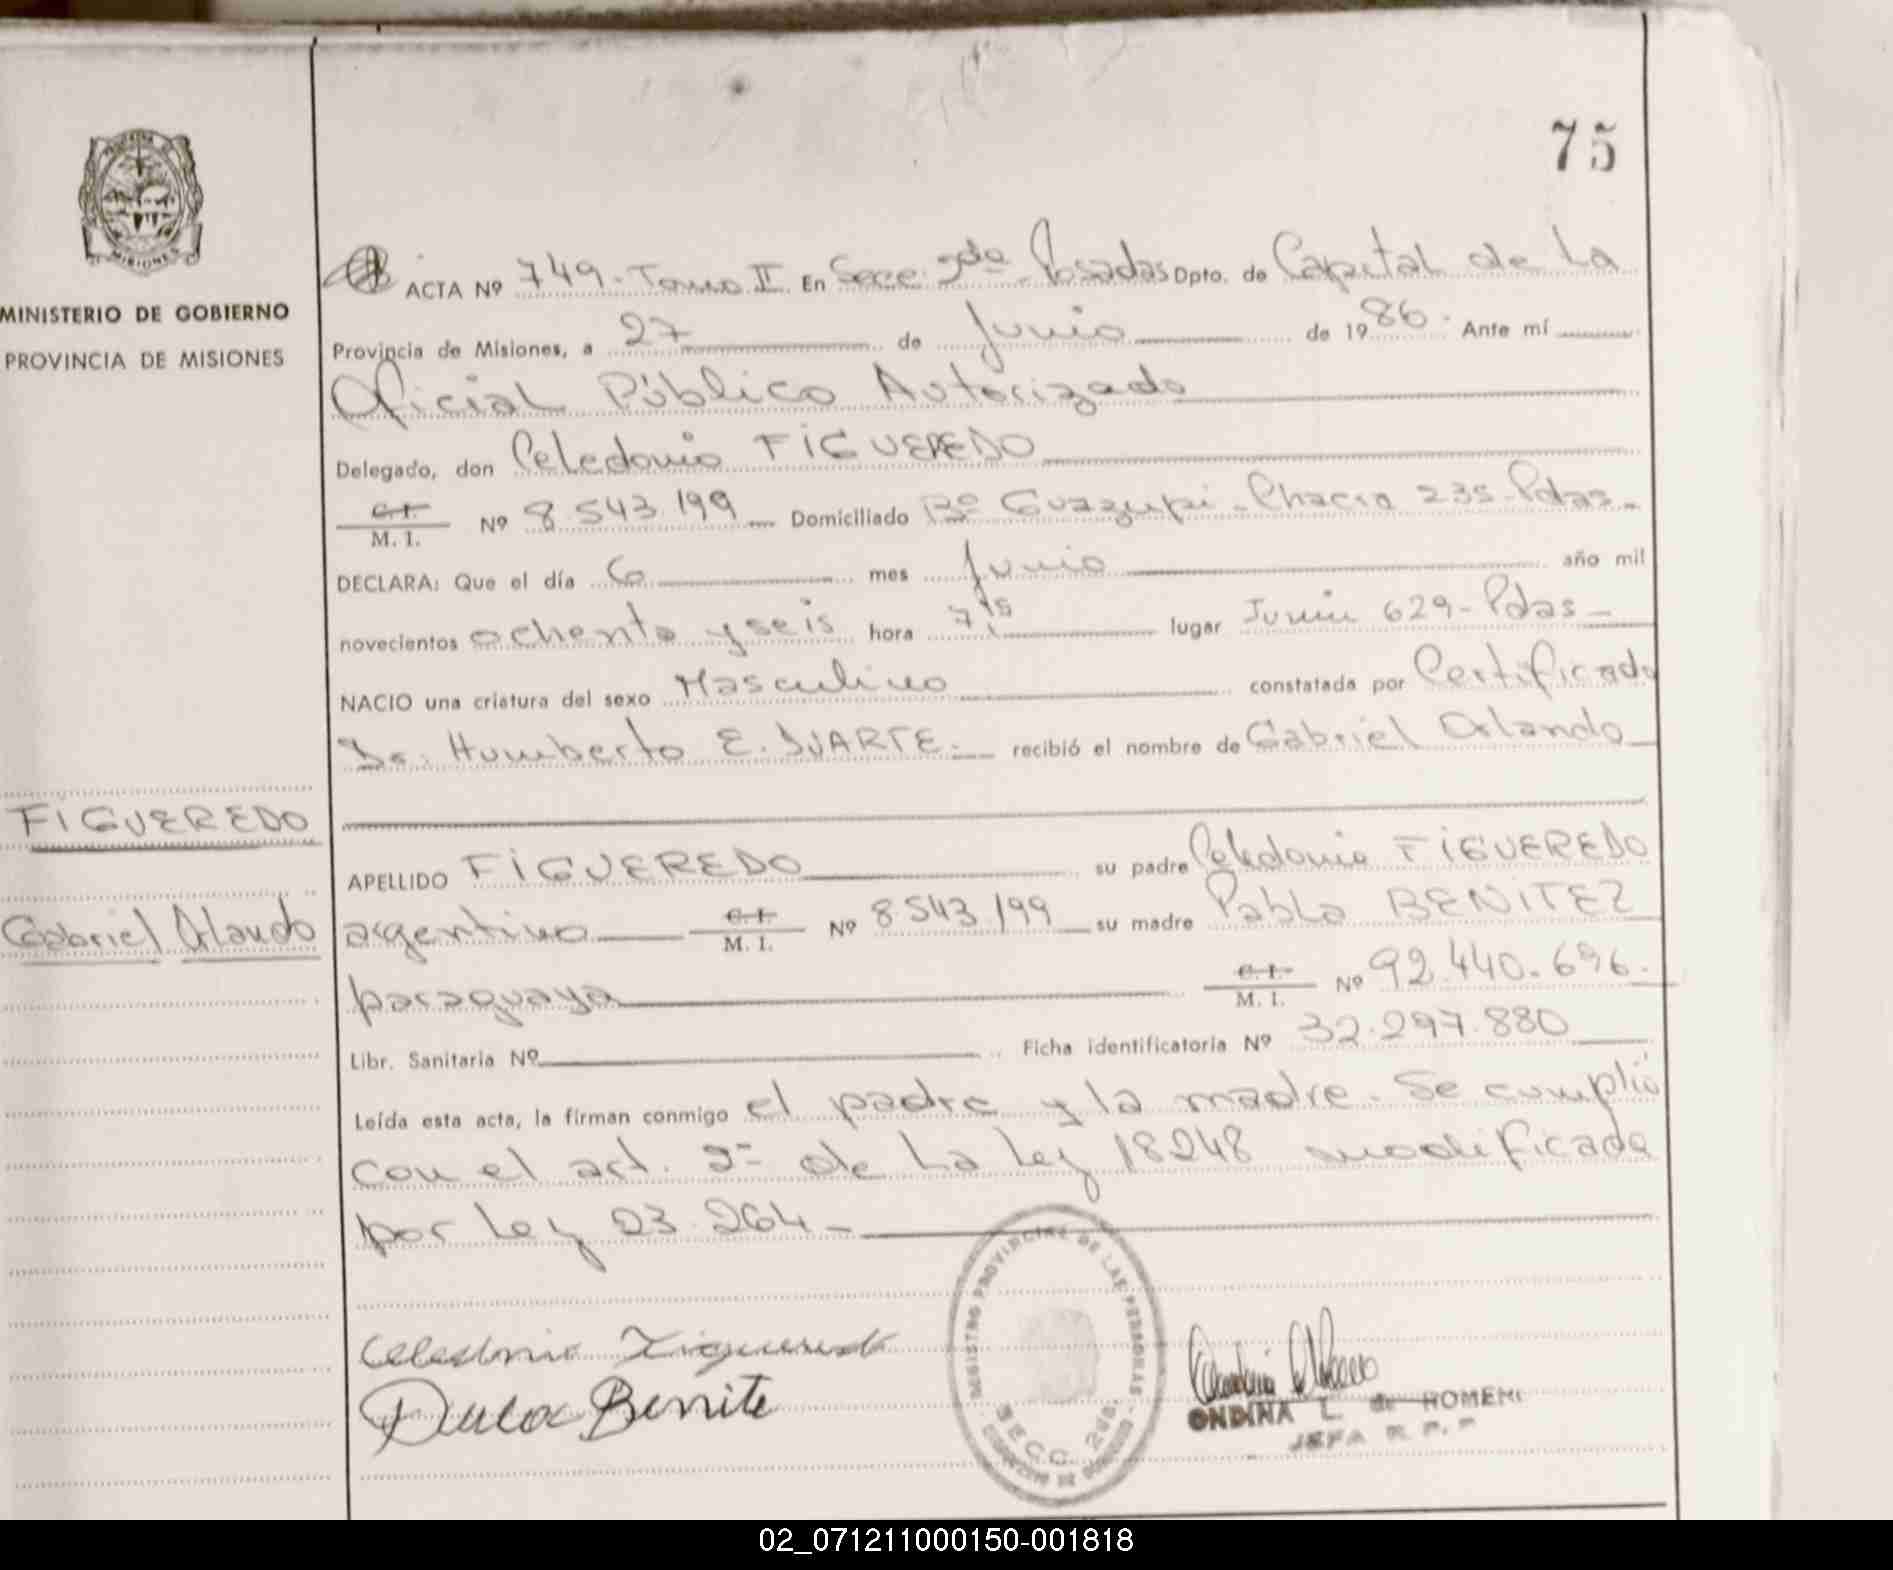 75
MISIONES
MINISTERIO DE GOBIERNO
PROVINCIA DE MISIONES
ACTA Nº 749 - Tomo II En Secc. 2da Posadas Dpto. de Capital de La
Provincia de Misiones, a 27 de Junio de 1986. Ante mí
Oficial Público Autorizado
Delegado, don Celedonio FIGUEREDO
C.I. M. I. Nº 8.543.199 Domiciliado Bº Guazupi - Chacra 235 - Pdas -
DECLARA: Que el día 6 mes Junio año mil
novecientos ochenta y seis hora 7,15 lugar Junin 629 - Pdas -
NACIO una criatura del sexo Masculino constatada por Certificado
Dr. Humberto E. DUARTE. recibió el nombre de Gabriel Orlando
FIGUEREDO
Gabriel Orlando
APELLIDO FIGUEREDO su padre Celedonio FIGUEREDO
argentino C.I. M. I. Nº 8.543.199 su madre Pabla BENITEZ
paraguaya C.I. M. I. Nº 92.440.696.
Libr. Sanitaria Nº Ficha identificatoria Nº 32.297.880
Leída esta acta, la firman conmigo el padre y la madre. Se cumplió
con el art. 2º de La Ley 18248 modificada
por Ley 23.264 -
Celedonio Figueredo
Benite
REGISTRO PROVINCIAL DE LAS PERSONAS
SECC. 2da.
ONDINA L. de ROMERO
JEFA R. P. P
02_071211000150-001818